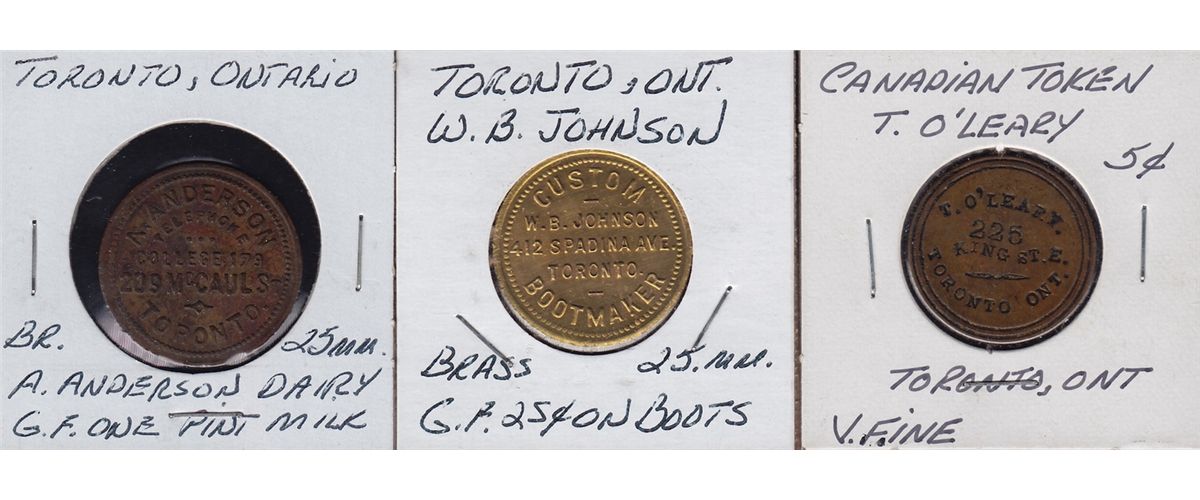 TORONTO, ONTARIO
A. ANDERSON
TELEPHONE
COLLEGE 179
209 McCAUL ST
TORONTO
BR. 25MM.
A. ANDERSON DAIRY
G.F. ONE PINT MILK
TORONTO, ONT.
W. B. JOHNSON
CUSTOM
W. B. JOHNSON
412 SPADINA AVE.
TORONTO.
BOOTMAKER
BRASS 25.MM.
G.F. 25¢ ON BOOTS
CANADIAN TOKEN
T. O'LEARY
5¢
T. O'LEARY.
225
KING ST. E.
TORONTO ONT.
TORONTO, ONT
V.FINE